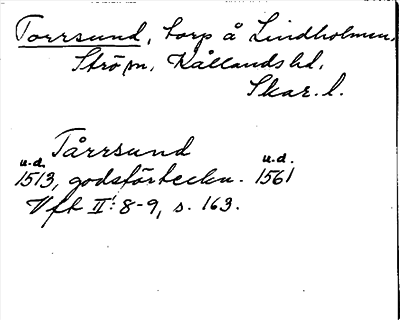 Torrsund, torp å Lindholmen,
Ströja, Kållands hd,
Skar. l.
Tårrsund
u.d. u.d.
1513, godsförteckn. 1561
Vft II: 8-9, s. 163.